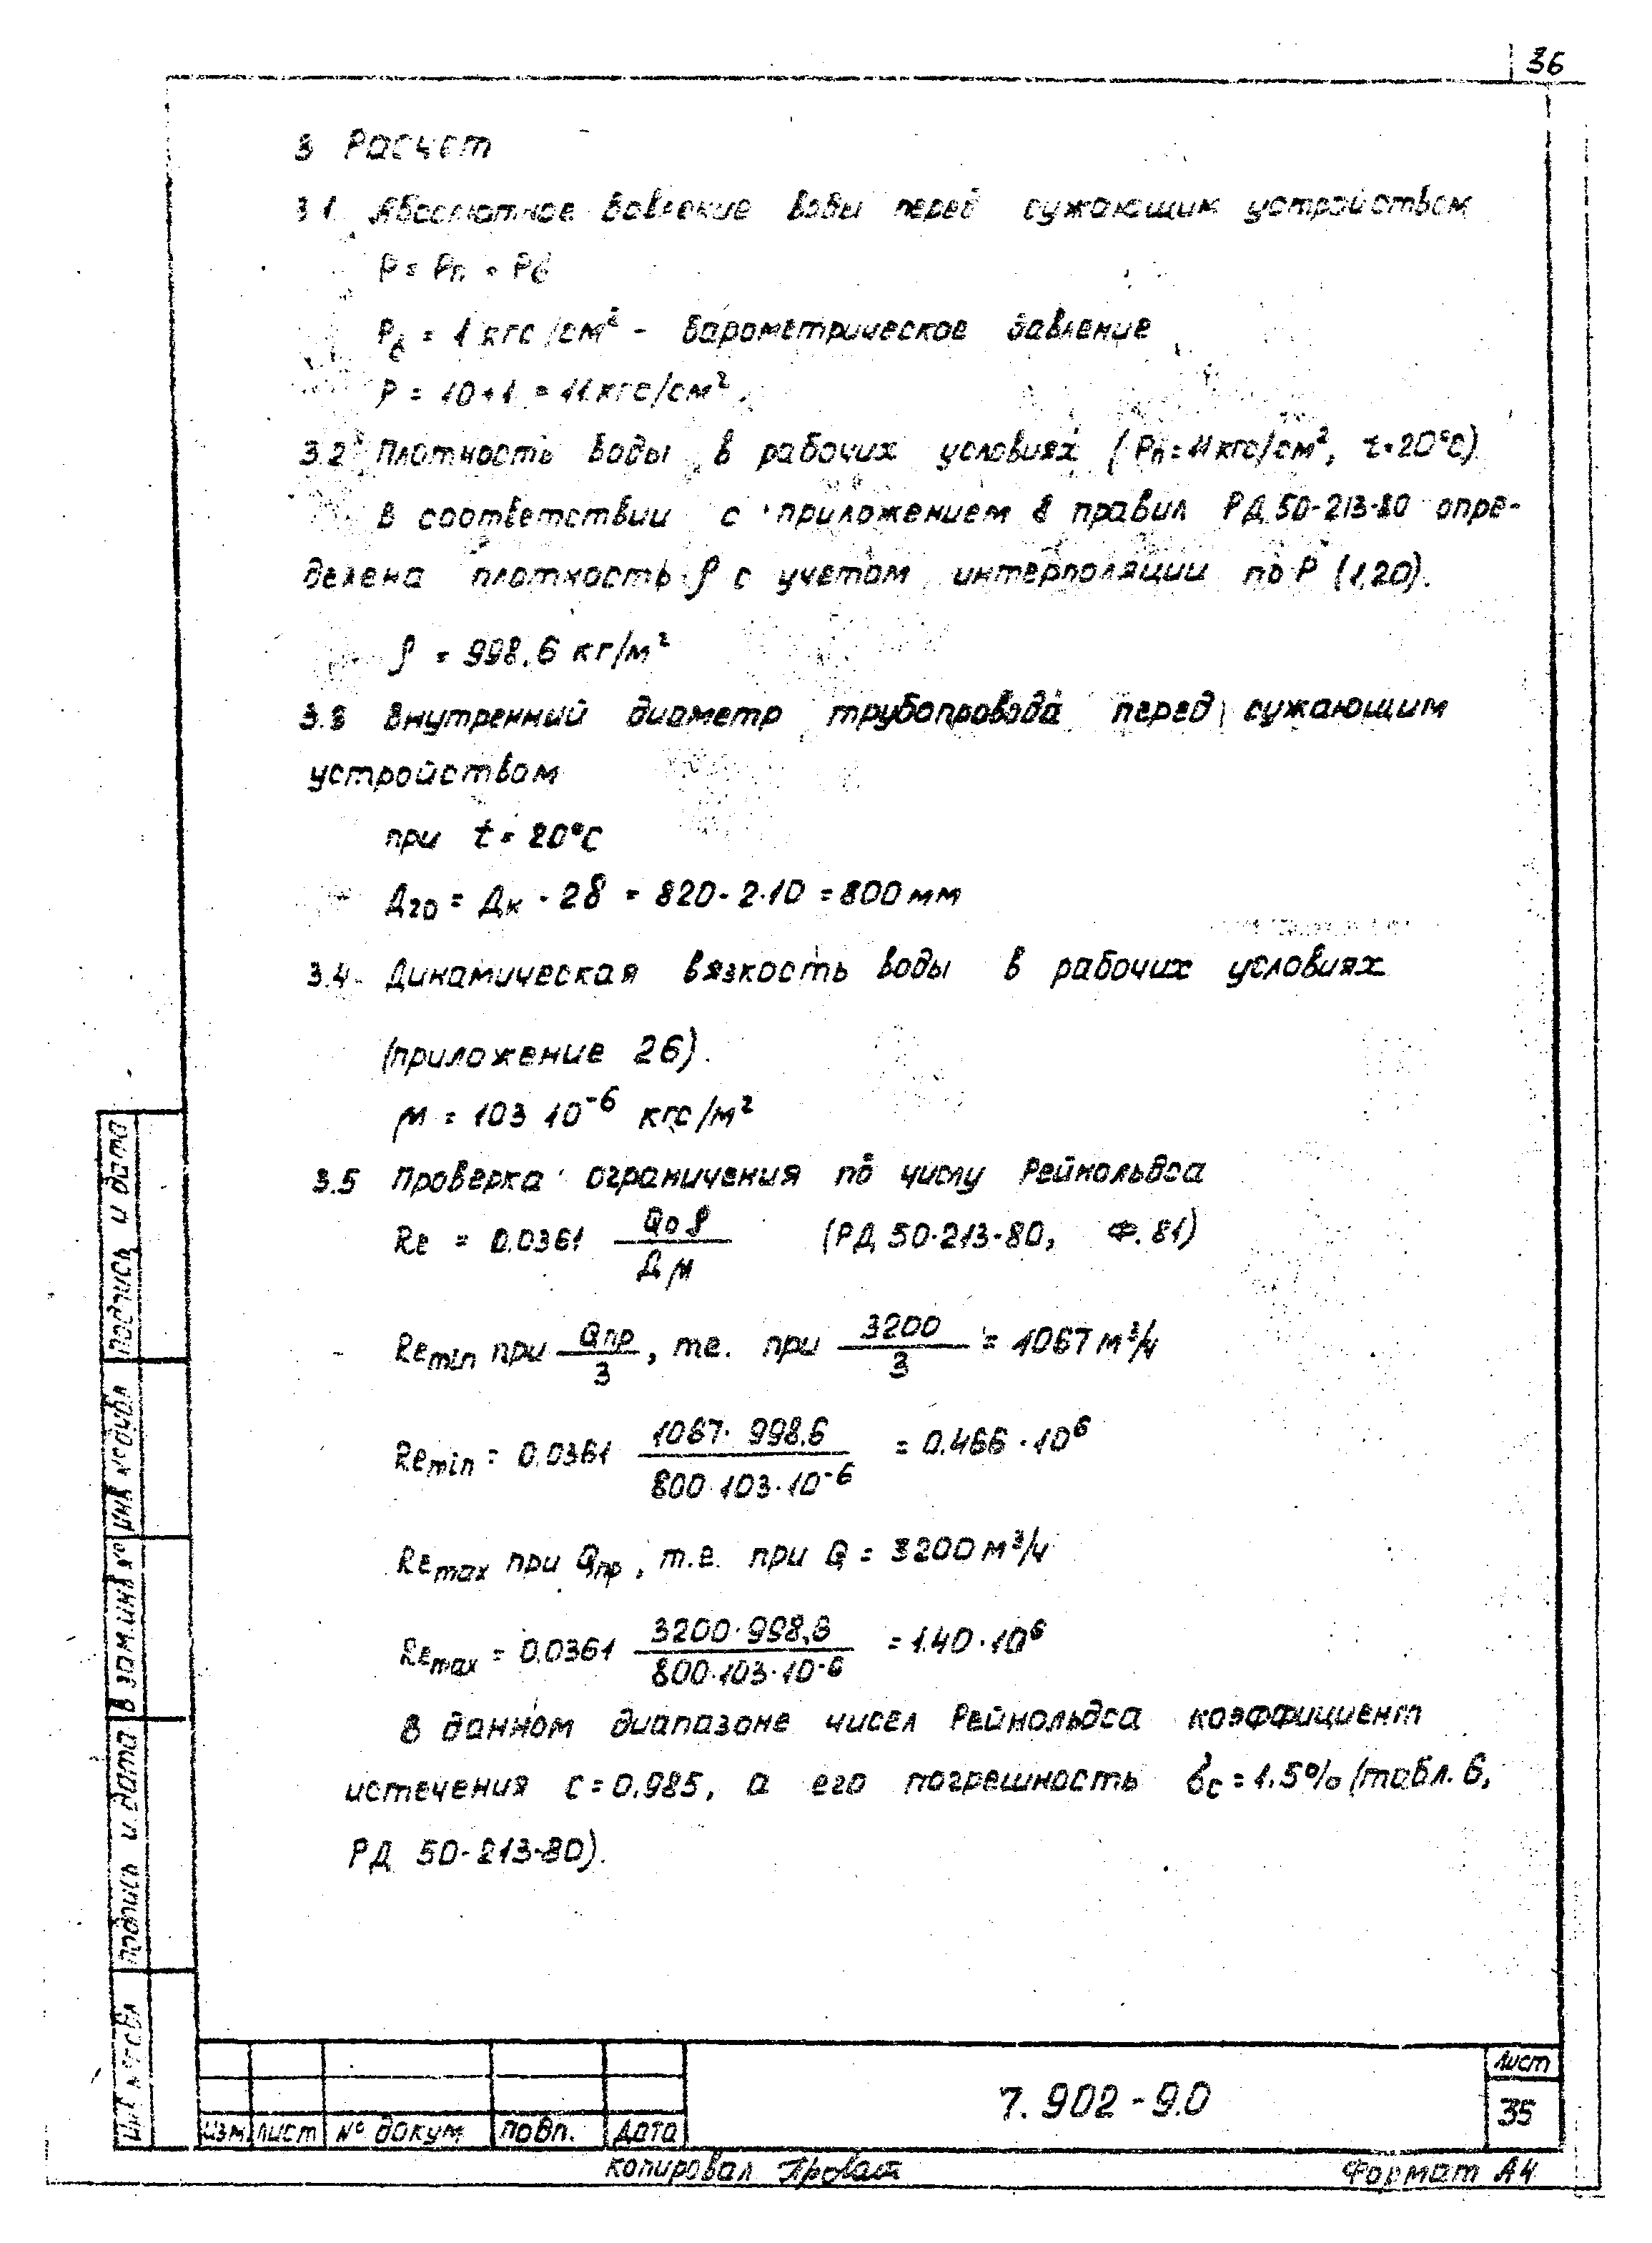 36
3 Расчет
3.1. Абсолютное давление воды перед сужающим устройством
P = Pп + Pб
Pб = 1 кгс/см² - барометрическое давление
P = 10+1 = 11 кгс/см².
3.2 Плотность воды в рабочих условиях (Pп = 11 кгс/см², t=20°С)
В соответствии с приложением 8 правил РД 50-213-80 опре-
делена плотность ρ с учетом интерполяции по P (1,20).
ρ = 998.6 кг/м²
3.3 Внутренний диаметр трубопровода перед сужающим
устройством
при t = 20°С
Д₂₀ = Дк - 2δ = 820 - 2·10 = 800 мм
3.4. Динамическая вязкость воды в рабочих условиях
(приложение 26).
μ = 103 10⁻⁶ кгс/м²
3.5 Проверка ограничения по числу Рейнольдса
Re = 0.0361 Qoρ / Дμ (РД 50-213-80, Ф. 81)
Remin при Qпр / 3, т.е. при 3200 / 3 = 1067 м³/ч
Remin = 0.0361 1067· 998.6 / 800·103·10⁻⁶ = 0.466 · 10⁶
Remax при Qпр, т.е. при Q = 3200 м³/ч
Remax = 0.0361 3200·998.6 / 800·103·10⁻⁶ = 1.40 · 10⁶
В данном диапазоне чисел Рейнольдса коэффициент
истечения с = 0.985, а его погрешность бс = 1.5% (табл. 6,
РД 50-213-80).
Подпись и дата
Инв № дубл
Взам. инв №
Подпись и дата
Изм Лист № докум Подп. Дата
7.902-9.0
Лист
35
Копировал
Формат А4